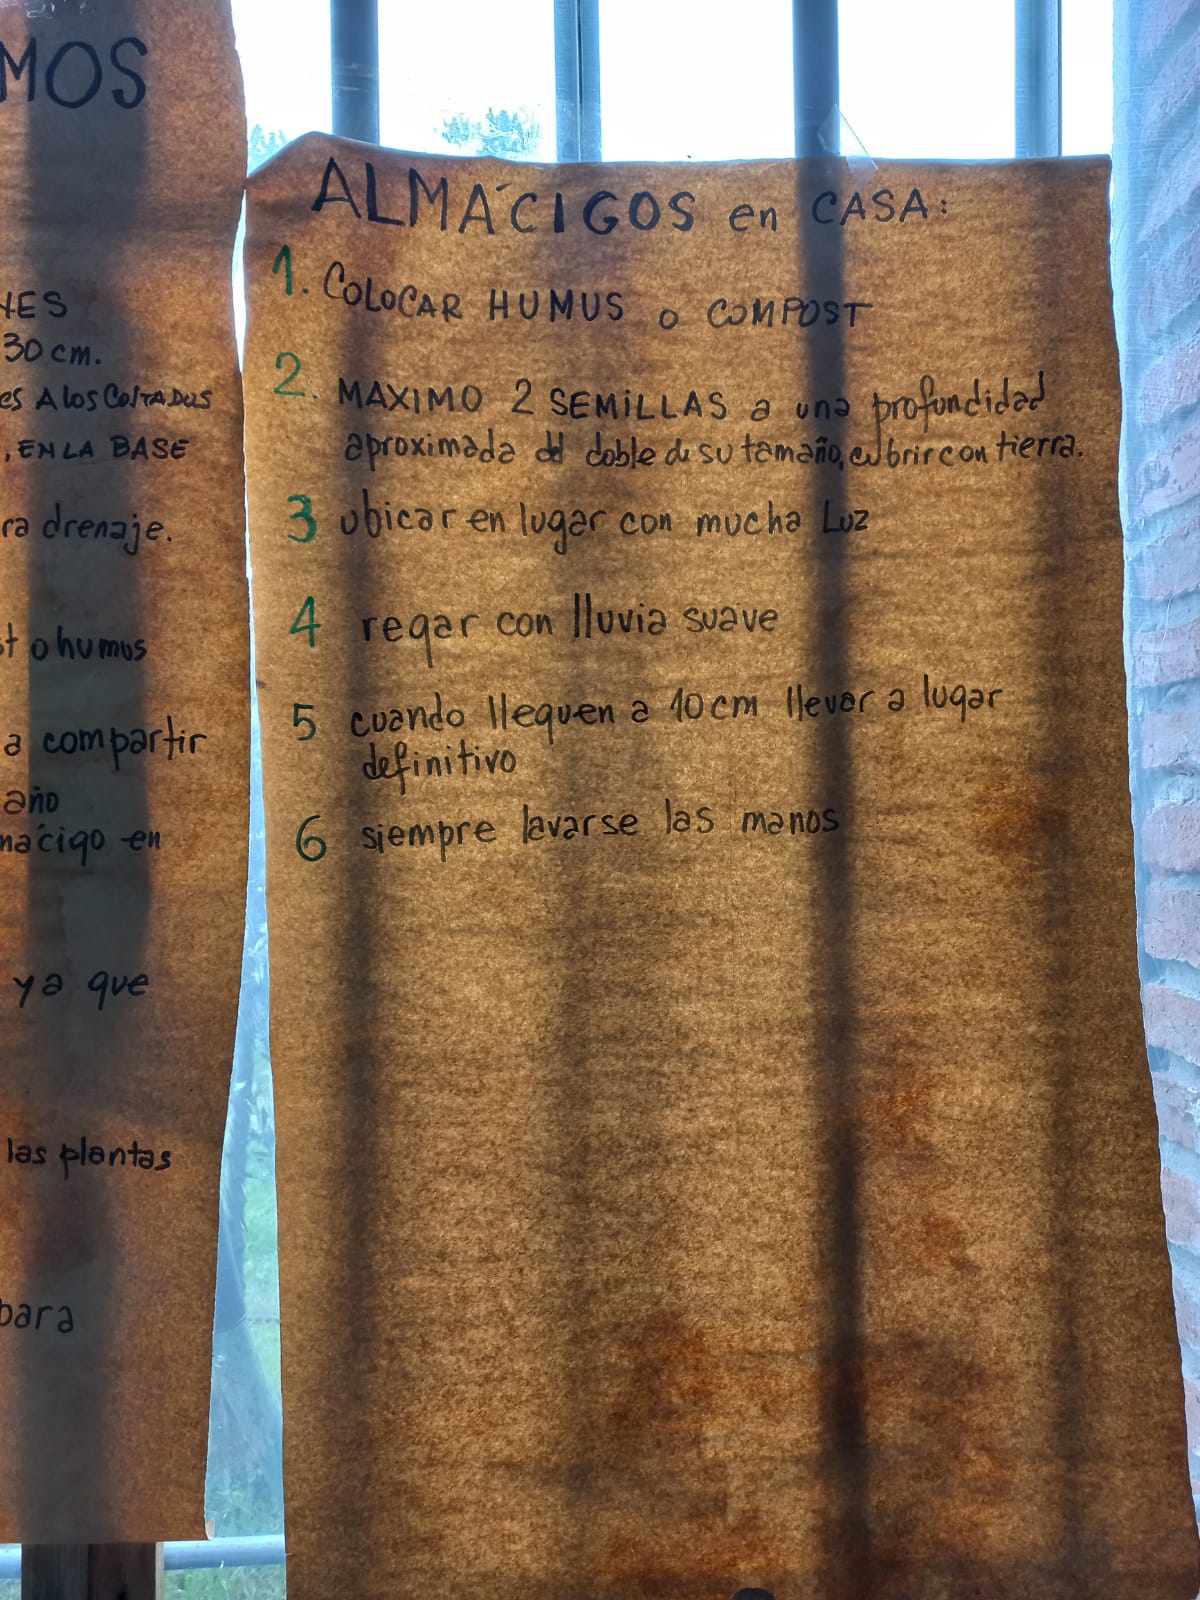 MOS
30 cm.
es A los Costados
, EN LA BASE
ra drenaje.
st o humus
a compartir
año
mácigo en
ya que
las plantas
para
ALMÁCIGOS en CASA:
1. COLOCAR HUMUS o COMPOST
2. MAXIMO 2 SEMILLAS a una profundidad
aproximada del doble de su tamaño, cubrir con tierra.
3 ubicar en lugar con mucha Luz
4 regar con lluvia suave
5 cuando lleguen a 10 cm llevar a lugar
definitivo
6 siempre lavarse las manos